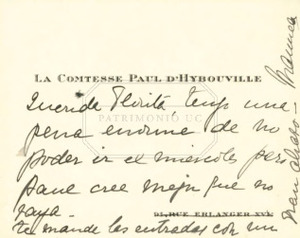 LA COMTESSE PAUL D'HYBOUVILLE
PATRIMONIO UC
Querida Florita, tengo una
pena enorme de no
poder ir el miercoles pero
Paul cree mejor que no
vaya.-
91, RUE ERLANGER XVI.
te mando las entradas con un